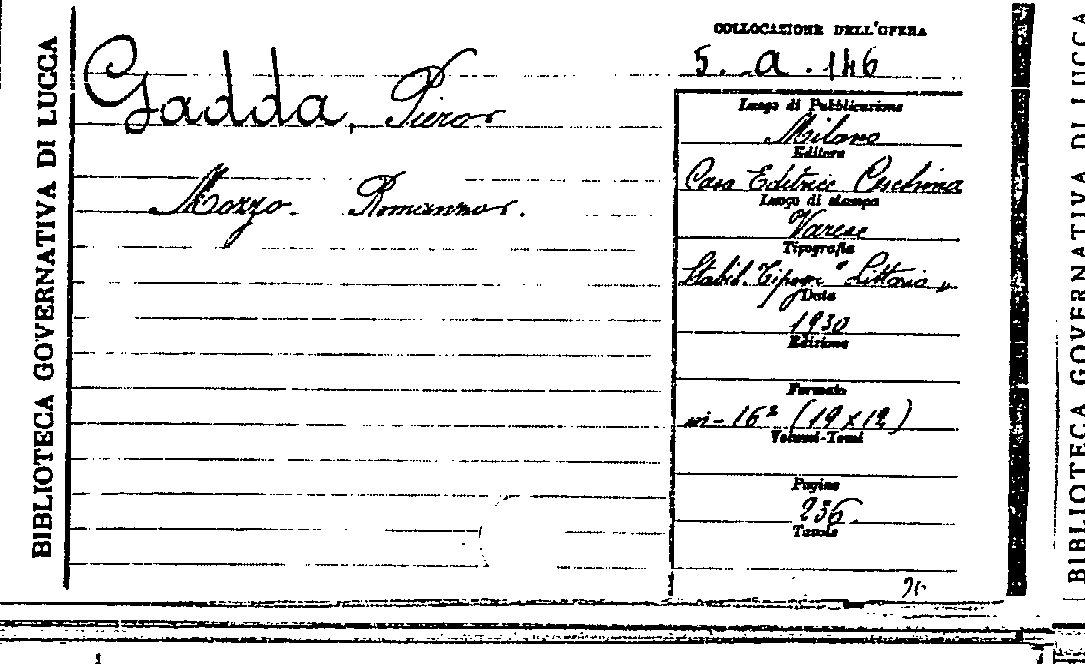 BIBLIOTECA GOVERNATIVA DI LUCCA
Gadda, Piero
Mozzo. Romanzo.
COLLOCAZIONE DELL'OPERA
5. a. 146
Luogo di Pubblicazione
Milano
Editore
Casa Editrice Ceschina
Luogo di stampa
Varese
Tipografia
Stabil. Tipogr. "Littorio"
Data
1930
Edizione
Formato
in-16° (19x12)
Volumi-Tomi
Pagine
236.
Tavole
BIBLIOTECA GOVERNATIVA DI LUCCA